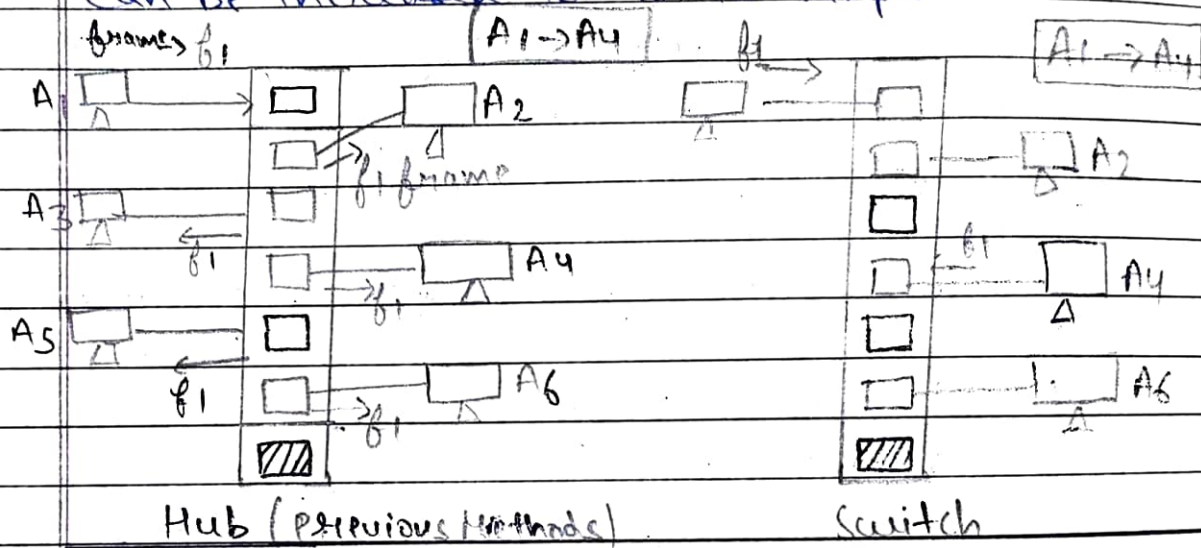 frames f1
A1 → A4
f1
A1 → A4
A
A2
A2
f1 frame
A3
f1
A4
f1
f1
A4
A5
f1
A6
f1
A6
Hub (previous Methods)
Switch